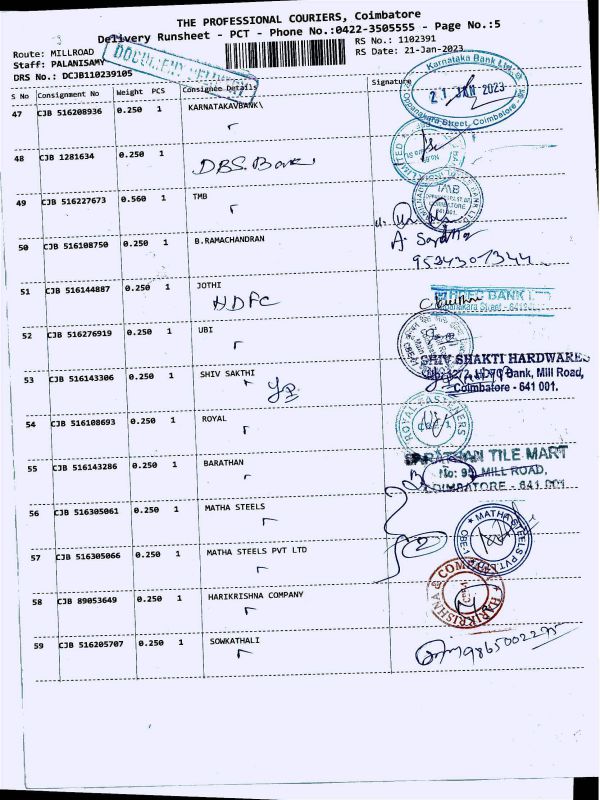 THE PROFESSIONAL COURIERS, Coimbatore
Delivery Runsheet - PCT - Phone No.:0422-3505555 - Page No.:5
Route: MILLROAD
RS No.: 1102391
Staff: PALANISAMY
RS Date: 21-Jan-2023
DRS No.: DCJB110239105
S No Consignment No Weight PCS Consignee Details Signature
47 CJB 516208936 0.250 1 KARNATAKAVBANK\
Karnataka Bank Ltd.
21 JAN 2023
Oppanakara Street, Coimbatore
48 CJB 1281634 0.250 1
DBS. Bank
49 CJB 516227673 0.560 1 TMB
TMB
COIMBATORE
641 001.
50 CJB 516108750 0.250 1 B.RAMACHANDRAN
51 CJB 516144887 0.250 1 JOTHI
HDFC
HDFC BANK LTD
Oppanakara Street - 641001
52 CJB 516276919 0.250 1 UBI
53 CJB 516143306 0.250 1 SHIV SAKTHI
SHIV SHAKTI HARDWARES
Bank, Mill Road,
Coimbatore - 641 001.
54 CJB 516108693 0.250 1 ROYAL
ROYAL FASTENERS
55 CJB 516143286 0.250 1 BARATHAN
BARATHAN TILE MART
No: 95, MILL ROAD,
COIMBATORE - 641 001
56 CJB 516305061 0.250 1 MATHA STEELS
57 CJB 516305066 0.250 1 MATHA STEELS PVT LTD
MATHA STEELS PVT. LTD
58 CJB 89053649 0.250 1 HARIKRISHNA COMPANY
HARIKRISHNA & COMPANY
59 CJB 516205707 0.250 1 SOWKATHALI
9865002275